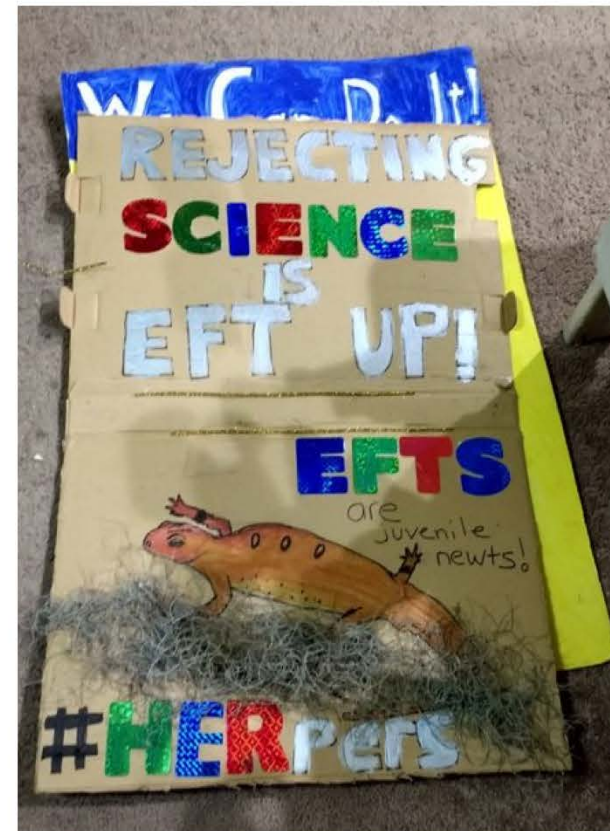 REJECTING
SCIENCE
IS
EFT UP!
EFTS
are
juvenile
newts!
#HERpers